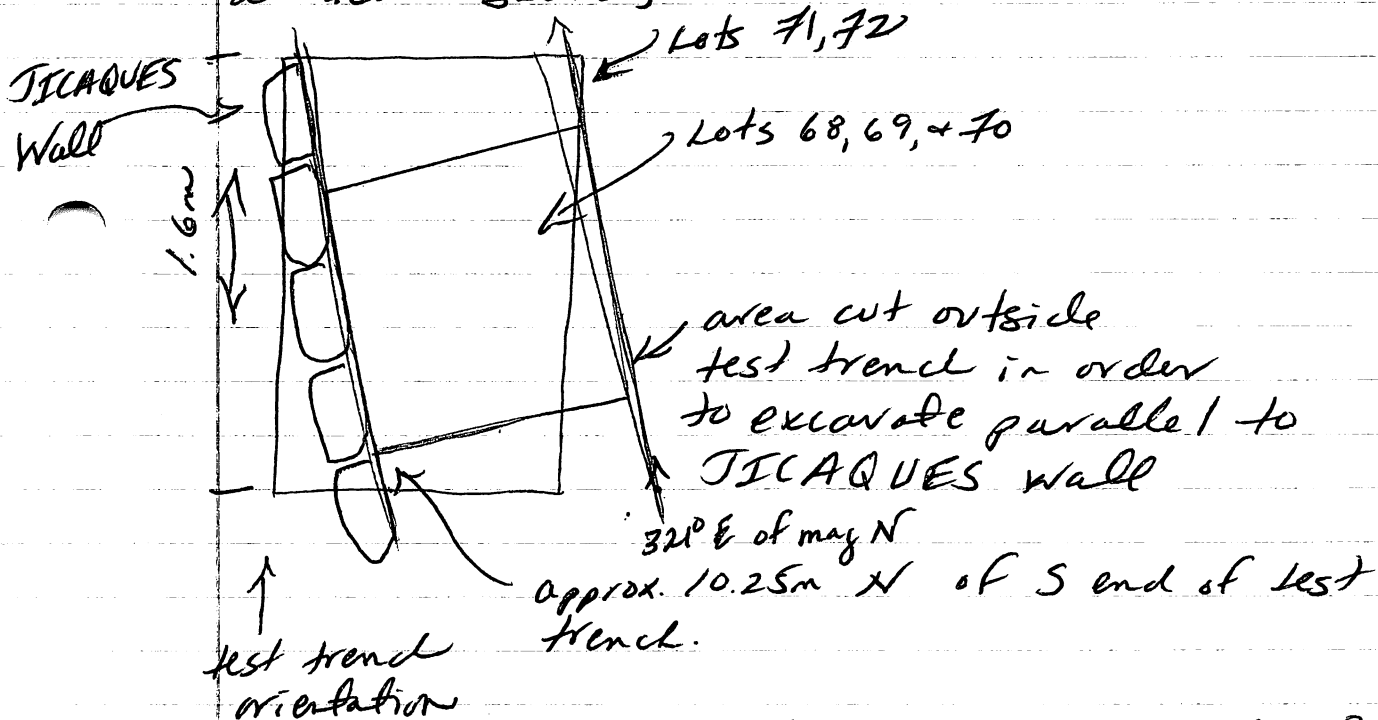 Lots 71, 72
JICAQUES
Wall
Lots 68, 69, + 70
1.6m
area cut outside
test trench in order
to excavate parallel to
JICAQUES Wall
321° E of mag N
approx. 10.25m N of S end of test
trench.
test trench
orientation